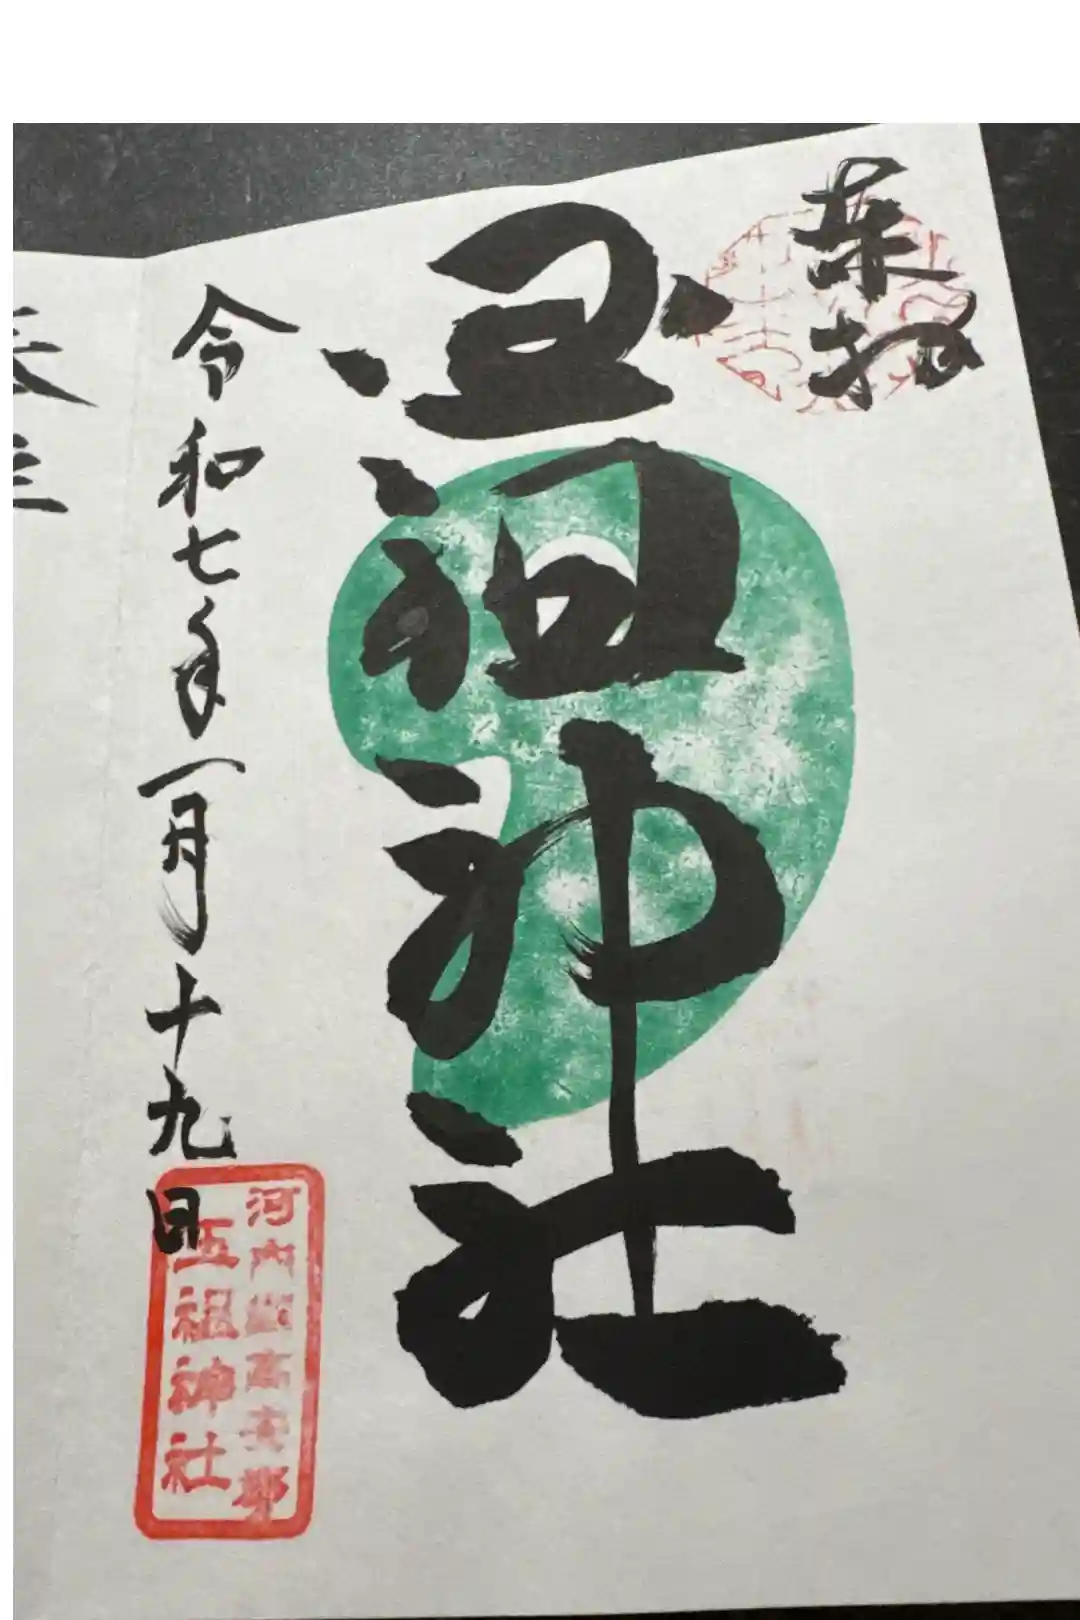 奉拝
玉祖神社
令和七年一月十九日
河内國高安郡
玉祖神社